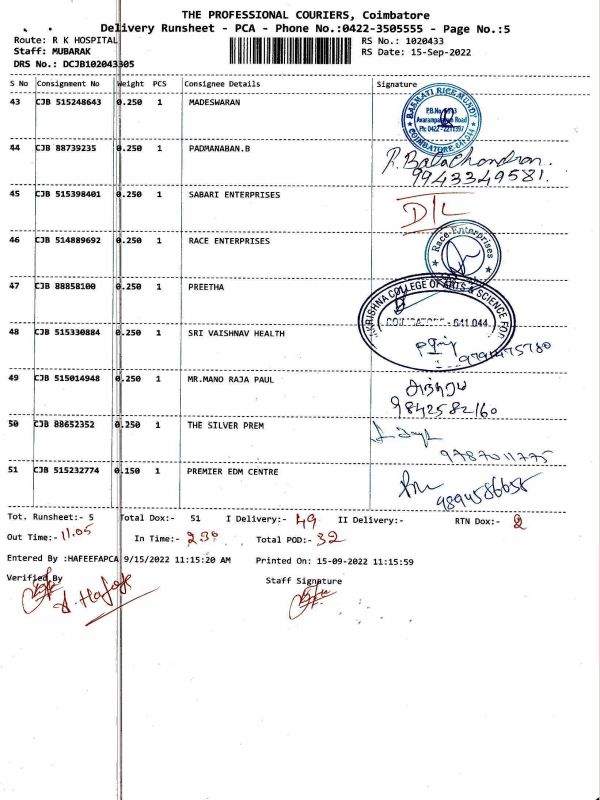 THE PROFESSIONAL COURIERS, Coimbatore
Delivery Runsheet - PCA - Phone No.:0422-3505555 - Page No.:5
Route: R K HOSPITAL RS No.: 1020433
Staff: MUBARAK RS Date: 15-Sep-2022
DRS No.: DCJB102043305
S No Consignment No Weight PCS Consignee Details Signature
43 CJB 515248643 0.250 1 MADESWARAN
BASMATI RICE MUNDY
COIMBATORE
44 CJB 88739235 0.250 1 PADMANABAN.B
R. Balachandran.
9943349581.
45 CJB 515398401 0.250 1 SABARI ENTERPRISES
D/L
46 CJB 514889692 0.250 1 RACE ENTERPRISES
Race Enterprises
47 CJB 88858100 0.250 1 PREETHA
KRISHNA COLLEGE OF ARTS & SCIENCE FOR
COIMBATORE - 641 044
48 CJB 515330884 0.250 1 SRI VAISHNAV HEALTH
49 CJB 515014948 0.250 1 MR.MANO RAJA PAUL
9842582160
50 CJB 88652352 0.250 1 THE SILVER PREM
9787011775
51 CJB 515232774 0.150 1 PREMIER EDM CENTRE
9894586658
Tot. Runsheet:- 5 Total Dox:- 51 I Delivery:- 49 II Delivery:- RTN Dox:- 2
Out Time:- 11.05 In Time:- 2.30 Total POD:- 32
Entered By :HAFEEFAPCA 9/15/2022 11:15:20 AM Printed On: 15-09-2022 11:15:59
Verified By Staff Signature